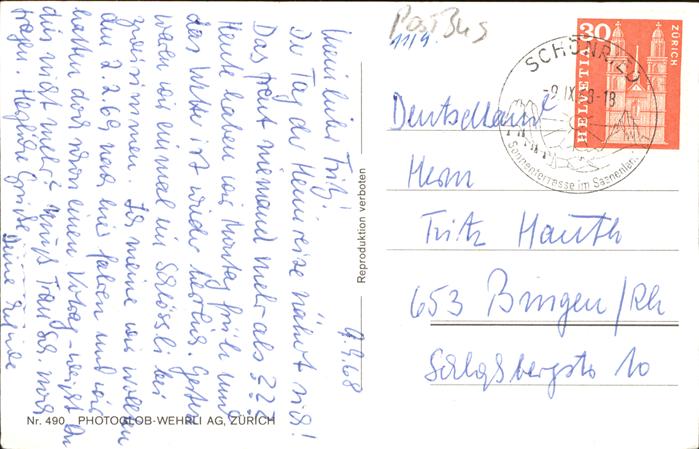 9.9.68
Mein lieber Fritz!
Der Tag der Heimreise nähert sich!
Das freut niemand mehr als ???
Heute haben wir Montag früh und
das Wetter ist wieder herrlich. Gestern
waren wir einmal in Schlössli bei
Zweisimmen. Ich meine wir wollten
am 2.2.69 nach hier fahren und wir
hatten doch schon einen Vertrag - weißt Du
das nicht mehr? Muß Frau
fragen. Herzliche Grüße
Deine
Nr. 490 PHOTOGLOB-WEHRLI AG, ZÜRICH
Reproduktion verboten
PostBus
1119.
HELVETIA 30 ZÜRICH
SCHÖNRIED
-9.IX.68-18
Sonnenterrasse im Saanenland
Deutschland
Herrn
Fritz Hauth
653 Bingen/Rh
Schloßbergstr 10